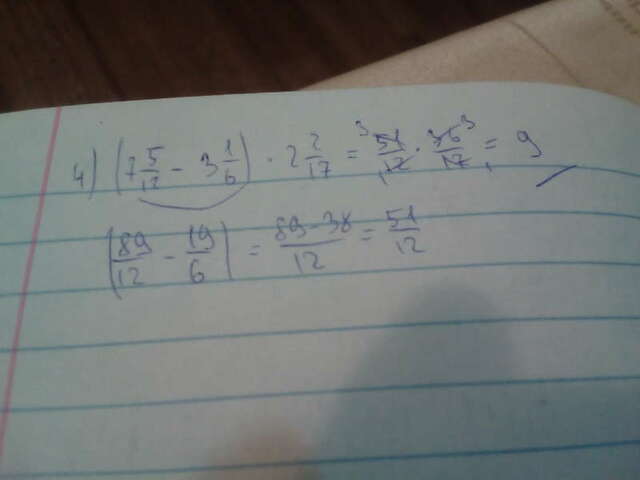 4) (7 5/12 - 3 1/6) · 2 2/17 = 51/12 · 36/17 = 9
(89/12 - 19/6) = 89-38/12 = 51/12